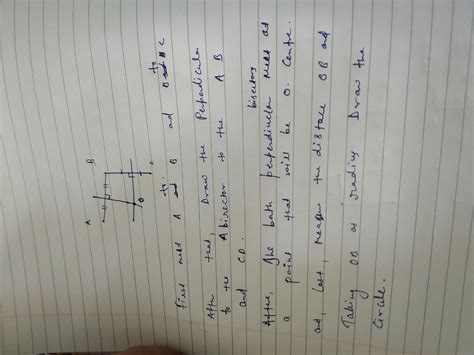 A
B
O
First meet A to B and B to C
After that, Draw the Perpendicular
to the A bisector to the A B
and CD.
After, The both perpendicular bisectors meet at
a point that will be O. Centre.
and, Last, measure the distance OB and
Taking OB as radius Draw the
Circle.